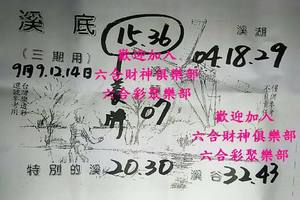 溪底
15.36
溪湖
04.18.29
(三期用)
9月9.12.14日
歡迎加入
六合財神俱樂部
六合彩聚樂部
07
歡迎加入
六合財神俱樂部
六合彩聚樂部
特別的溪 20.30
溪谷 32.43